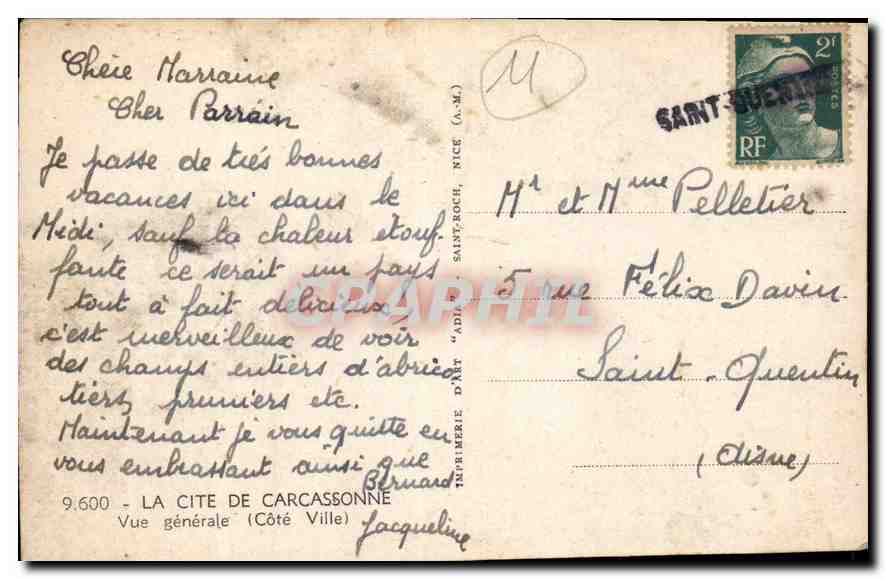 Chère Marraine
Cher Parrain
Je passe de très bonnes
vacances ici dans le
Midi, sauf la chaleur étouf-
fante ce serait un pays
tout à fait délicieux,
c'est merveilleux de voir
des champs entiers d'abrico
tiers, pruniers etc.
Maintenant je vous quitte en
vous embrassant ainsi que
Bernard
Jacqueline
9.600 - LA CITE DE CARCASSONNE
Vue générale (Côté Ville)
IMPRIMERIE D'ART "ADIA" - SAINT-ROCH, NICE (A.-M.)
M
SAINT-QUENTIN
2f
POSTES
RF
Mr et Mme Pelletier
5 rue Félix Davin
Saint-Quentin
(Aisne)
GRAPHIL